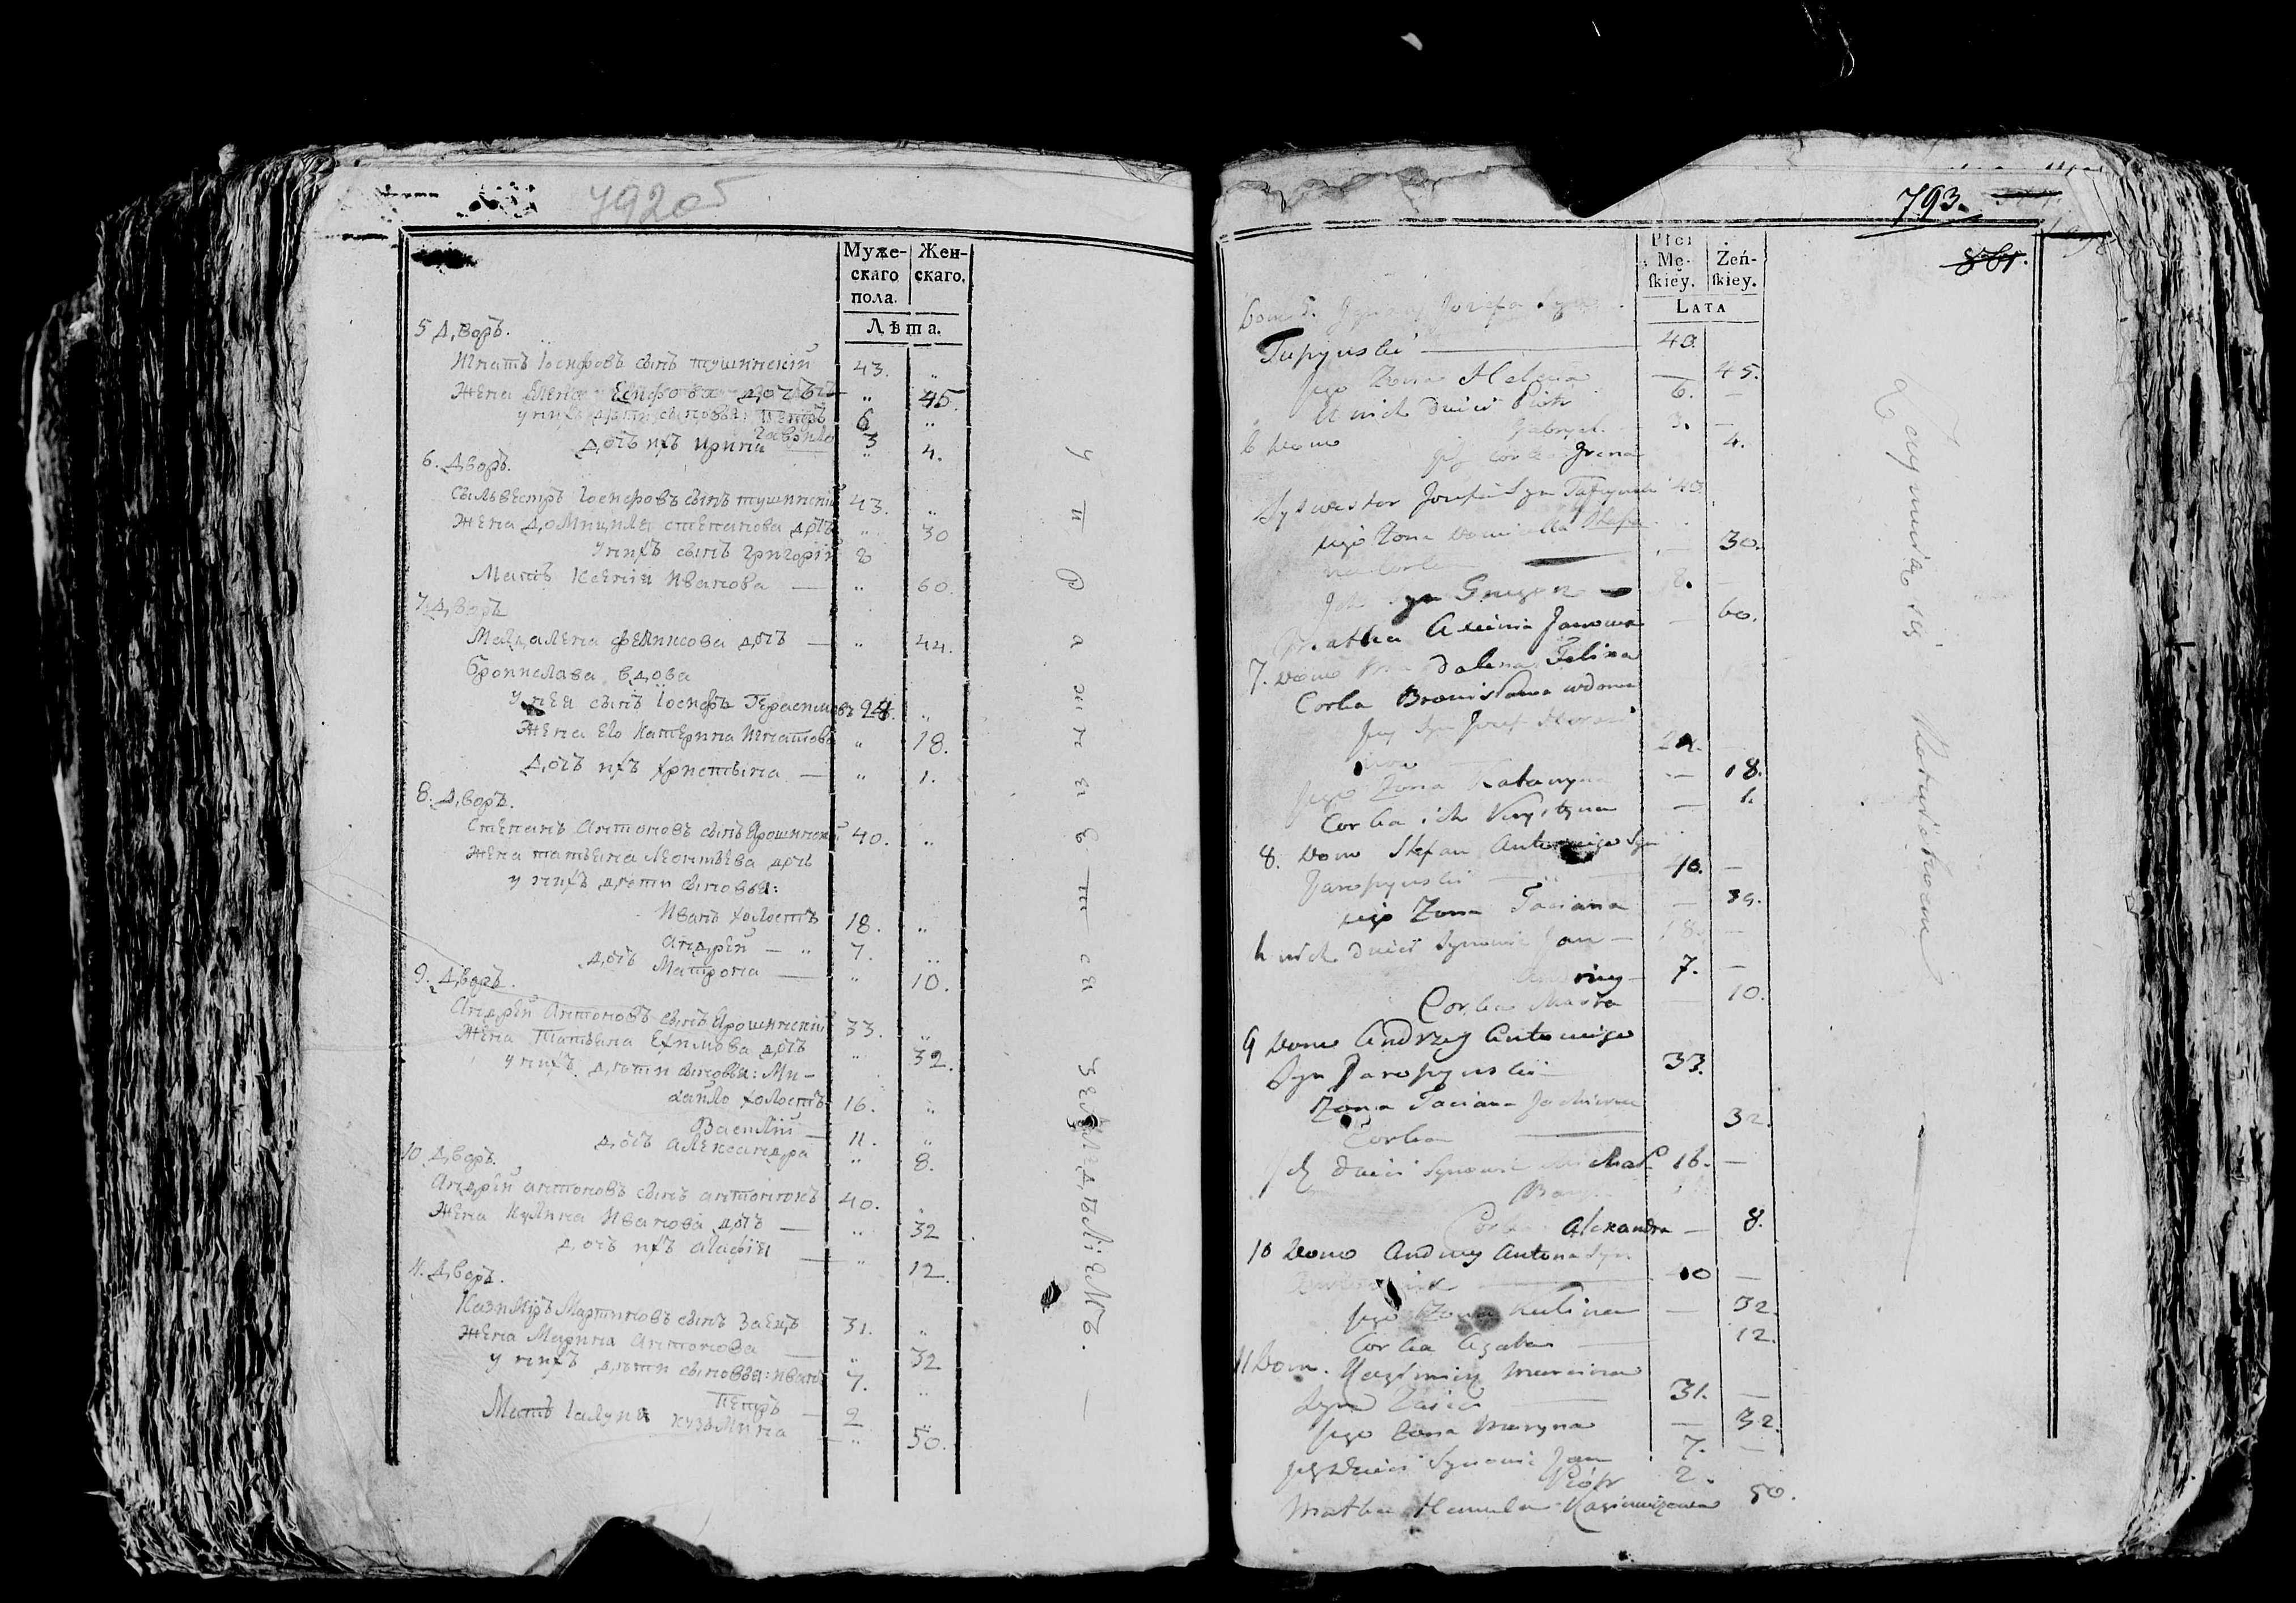 792об
Муже-
скаго
пола.
Жен-
скаго.
Лѣта.
5 Дворъ.
Игнатъ Іосифовъ сынъ тушинскій 43. „
Жена Елена дочь „ 45.
у нихъ дѣти сыновья: Петръ 6 „
Гаврило 3
дочь ихъ Ирина — „ 4.
6. Дворъ.
Сильвестръ Іосифовъ сынъ тушинскій 43. „
Жена Домицила степанова дочь „ 30
у нихъ сынъ Григорій 8
Мать Ксенія Иванова — „ 60.
7. Дворъ
Магдалена феликсова дочь — „ 44.
бронислава вдова
у нея сынъ Іосифъ Герасимовъ 24. „
Жена его Катерина Игнатова „ 18.
дочь ихъ христина — „ 1.
8. Дворъ.
Степанъ Антоновъ сынъ Ярошинскій 40. „
Жена татьяна Леонтьева дочь
у нихъ дѣти сыновья:
Иванъ холостъ 18. „
Андрей — „ 7. „
дочь Матрона — „ 10.
9. Дворъ.
Андрей Антоновъ сынъ Ярошинскій 33. „
Жена Татьяна Ефимова дочь „ 32.
у нихъ дѣти сыновья: Ми-
хайло холостъ 16. „
Василій — 11. „
дочь александра „ 8.
10 Дворъ.
Андрей антоновъ сынъ антонюкъ 40. „
Жена Кулина Иванова дочь — „ 32
дочь ихъ агафія — „ 12.
11. Дворъ.
Казиміръ Мартиновъ сынъ Заецъ 31. „
Жена Марина антонова — „ 32
у нихъ дѣти сыновья: иванъ 7. „
Петръ — 2
Мать кузьмина — „ 50.
упражняется земледѣліемъ. —
793.
861.
Płci
Mę-
ſkiey.
Żeń-
ſkiey.
LATA
Dom 5. Jozefa Syn
— 43.
jego Zona Helena — 45.
U nich dzieci Piotr 6. —
Gabryel 3. —
6 Dom
ich Corka Irena 4.
Sylwester Jozefa Syn 43.
jego Zona Domicella Stefa
na Corka — — 30.
Ich syn Gregor — 8. —
Matka Axenia Janowa — 60.
7. Dom Magdalena Felixa
Corka Bronisława wdowa
jey Syn Jozef
24.
jego Zona Katarzyna — 18.
Corka ich Krystyna — 1.
8. Dom Stefan Antoniego Syn
Jaroszynski — 40. —
jego Zona Taciana —
U nich dzieci Synowie Jan — 18. —
7. —
Corka — 10.
9 Dom Andrzey Antoniego
Syn Jaroszynski — 33.
Zona Taciana
Corka — 32.
dzieci Synowie Michał 16. —
Corka Alexandra — 8.
10 Dom Andrzey Antona Syn
— 40 —
jego Zona Kulina — 32.
Corka Agata — 12.
11 Dom. Kazimierz Marcina
Syn Zaiec — 31. —
jego Zona Maryna — 32.
dzieci Synowie Jan 7. —
Piotr 2.
Matka 50.
Zaymuie się Rolnictwem —